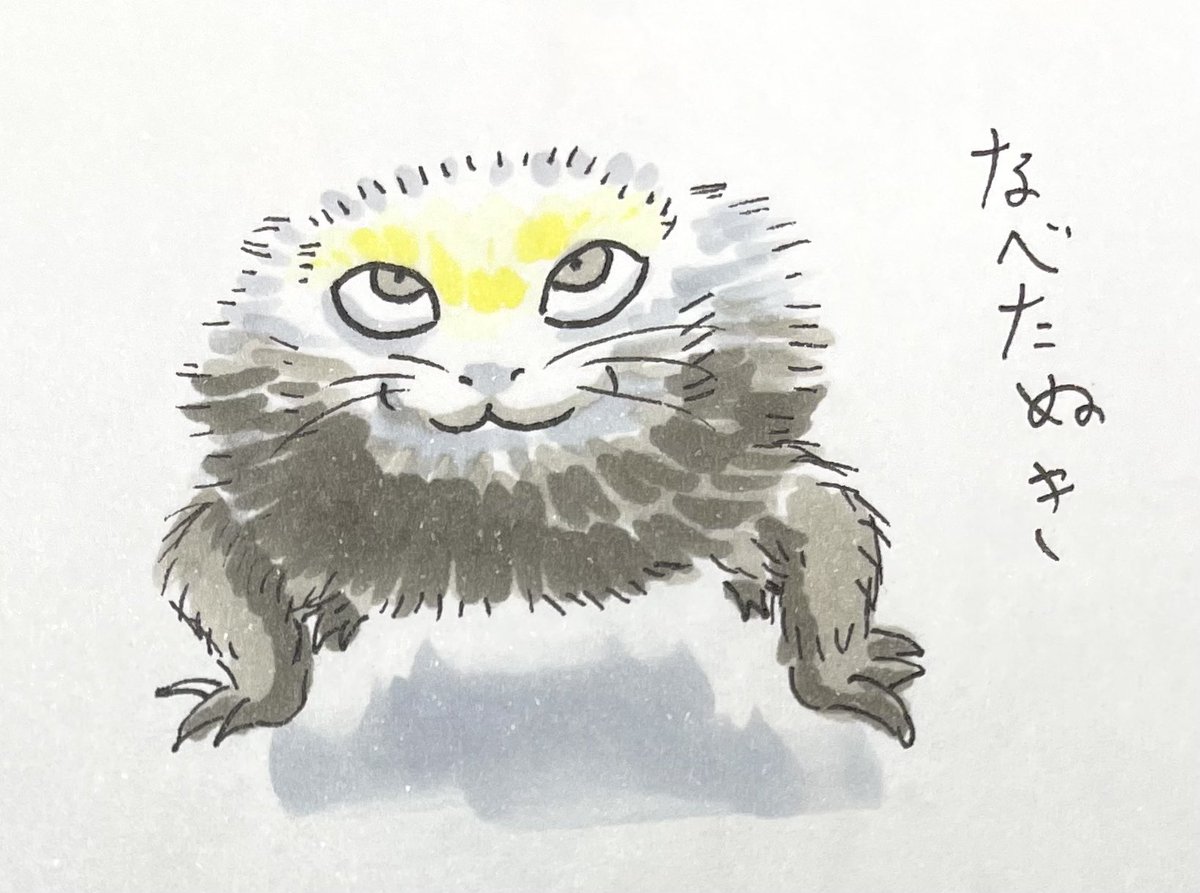 なべたぬき